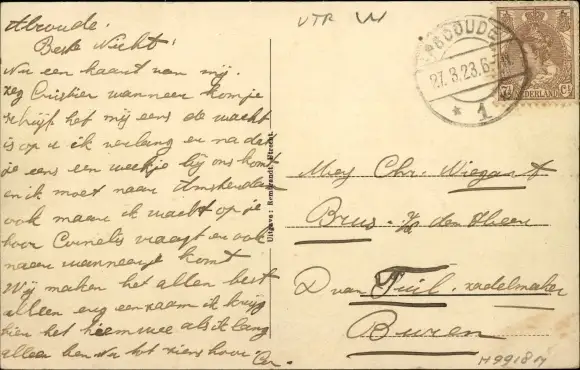 Abcoude.
Beste Nicht!
Nu een kaart van mij.
zeg Cristien wanneer kom je
schrijf het mij eens de wacht
is op u ik verlang er na dat
je eens een weekje bij ons komt
en ik moet naar Amsterdam
ook maar ik wacht op je
hoor Cornelis vraagt er ook
naar wanneer je komt
Wij maken het allen best
alleen erg eenzaam ik krijg
hier het heimwee als ik lang
alleen ben Nu tot ziens hoor
VTR
ABCOUDE
27.3.23.6-
1
7½ Ct
NEDERLAND
Uitgave: Rembrandt, Utrecht
Mej Chr. Wiegant
Brus. p/a den Heer
D van Tuil. zadelmaker
Buren
H9918